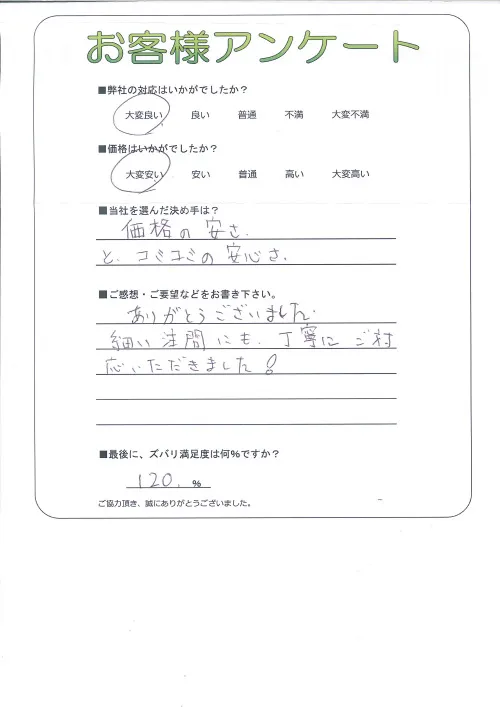 お客様アンケート
■弊社の対応はいかがでしたか？
大変良い 良い 普通 不満 大変不満
■価格はいかがでしたか？
大変安い 安い 普通 高い 大変高い
■当社を選んだ決め手は？
価格の安さ．
と、コミコミの安心さ．
■ご感想・ご要望などをお書き下さい。
ありがとうございました．
細い注問にも、丁寧にご対
応いただきました！
■最後に、ズバリ満足度は何％ですか？
120. ％
ご協力頂き、誠にありがとうございました。